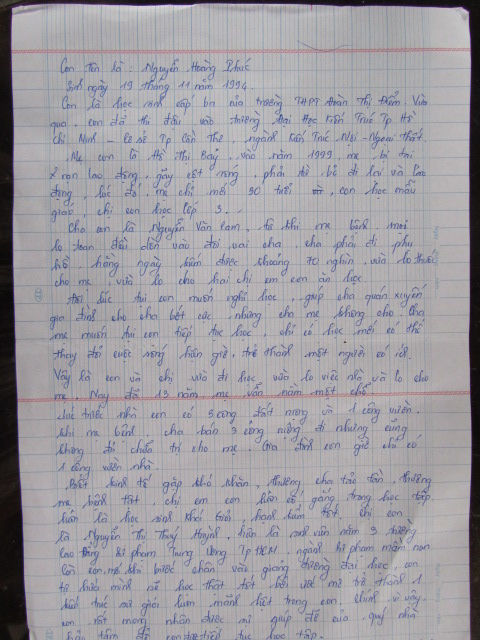 Con tên là : Nguyễn Hoàng Phúc
Sinh ngày 19 tháng 11 năm 1994
Con là học sinh cấp ba của trường THPT Đoàn Thị Điểm. Vừa
qua, con đã thi đậu vào trường Đại Học Kiến Trúc Tp Hồ
Chí Minh - cơ sở Tp Cần Thơ, ngành Kiến Trúc Nội - Ngoại thất.
Mẹ con là Hồ Thị Bảy, vào năm 1999, mẹ bị tai
nạn lao động, gãy cột sống, phải từ bỏ đi lại và lao
động, lúc đó mẹ chỉ mới 30 tuổi, con học mẫu
giáo, chị con học lớp 3.
Cha con là Nguyễn Văn Lam, từ khi mẹ bệnh, mọi
lo toan đổ dồn vào đôi vai cha, cha phải đi phụ
hồ, hằng ngày kiếm được khoảng 70 nghìn, vừa lo thuốc
cho mẹ, vừa lo cho hai chị em con ăn học.
Đôi lúc, tụi con muốn nghỉ học, giúp cha quán xuyến
gia đình cho cha bớt cực, nhưng cha mẹ không cho. Cha
mẹ muốn tụi con tiếp tục học, chỉ có học mới có thể
thay đổi cuộc sống hiện giờ, trở thành một người có ích.
Vậy là con và chị vừa đi học, vừa lo việc nhà và lo cho
mẹ. Nay đã 13 năm, mẹ vẫn nằm một chỗ.
Lúc trước nhà con có 3 công đất ruộng và 1 công vườn.
Khi mẹ bệnh, cha bán 3 công ruộng đi nhưng cũng
không đủ chữa trị cho mẹ. Gia đình con giờ chỉ có
1 công vườn nhà.
Biết kinh tế gặp khó khăn, thương cha tảo tần, thương
mẹ bệnh tật, chị em con luôn cố gắng trong học tập
luôn là học sinh khá giỏi, hạnh kiểm tốt. Chị con
là Nguyễn Thị Thúy Huỳnh, hiện là sinh viên năm 3 trường
Cao Đẳng Sư phạm Trung Ương Tp HCM, ngành Sư phạm mầm non
Còn con, mới bước chân vào giảng đường đại học, con
tự hứa mình sẽ học thật tốt bởi ước mơ trở thành 1
kiến trúc sư giỏi luôn mãnh liệt trong con. Chính vì vậy,
con rất mong nhận được sự giúp đỡ của quý nhà
hảo tâm để con được tiếp tục học tập.